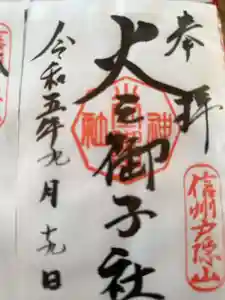 奉拝
信州戸隠山
火之御子社
令和五年九月十九日